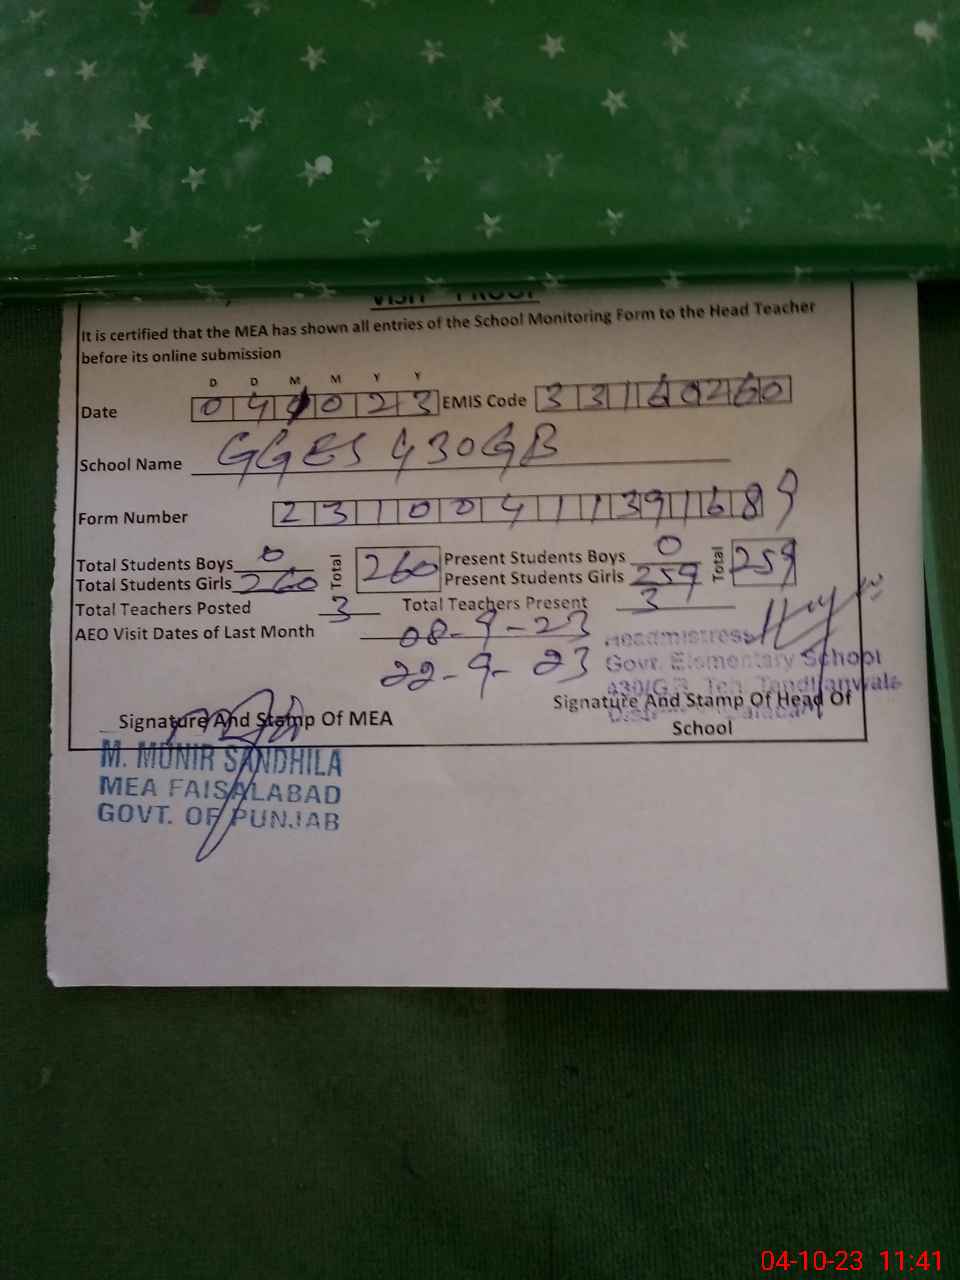 VISIT PROOF
It is certified that the MEA has shown all entries of the School Monitoring Form to the Head Teacher
before its online submission
D D M M Y Y
Date 0 4 1 0 2 3 EMIS Code 3 3 1 6 0 2 6 0
School Name GGES 430GB
Form Number 2 3 1 0 0 4 1 1 3 9 1 6 8 9
Total Students Boys 0 Total 260 Present Students Boys 0 Total 259
Total Students Girls 260 Present Students Girls 259
Total Teachers Posted 3 Total Teachers Present 3
AEO Visit Dates of Last Month 08-9-23
22-9-23
Headmistress
Govt. Elementary School
430/G.B. Teh. Tandlianwala
Signature And Stamp Of MEA
Signature And Stamp Of Head Of
School
M. MUNIR SANDHILA
MEA FAISALABAD
GOVT. OF PUNJAB
04-10-23 11:41